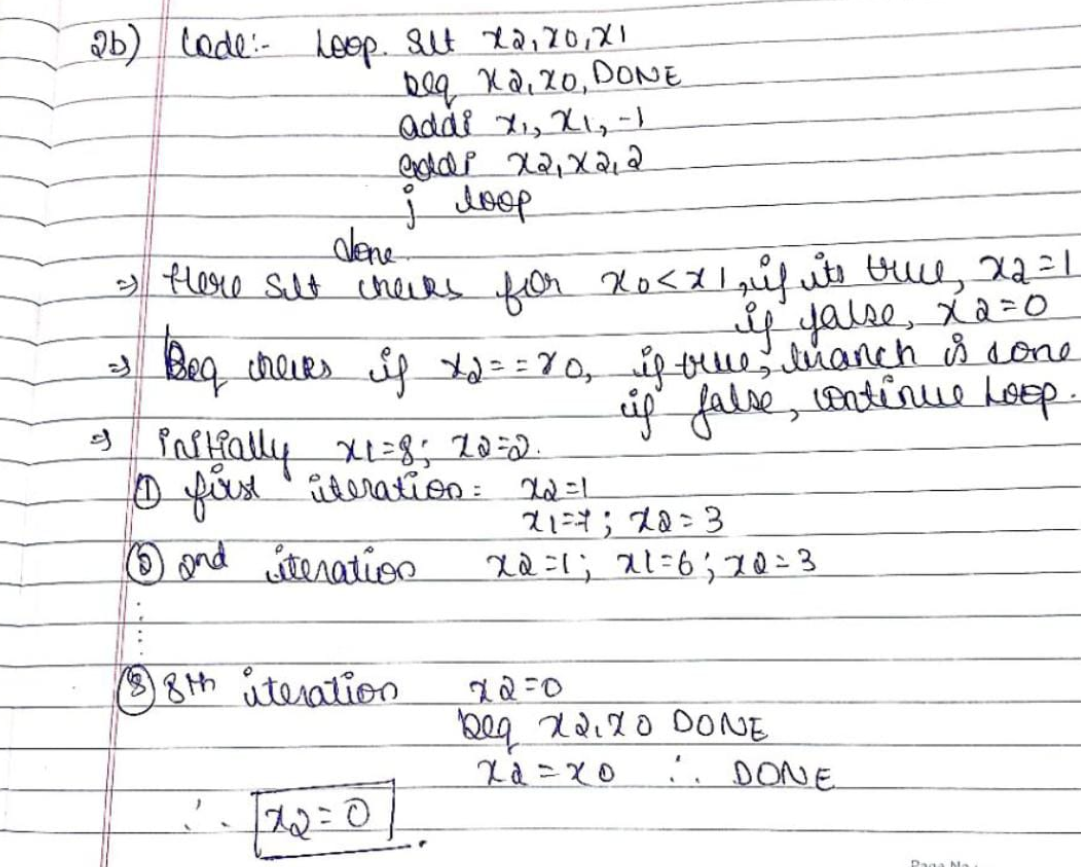 2b) Code:- Loop. Slt x2, x0, x1
beq x2, x0, DONE
addi x1, x1, -1
addi x2, x2, 2
j loop
done.
=> Here Slt checks for x0 < x1, if its true, x2 = 1
if false, x2 = 0
=> Beq checks if x2 == x0, if true, branch is done
if false, continue Loop.
=> initially x1 = 8; x2 = 2.
① first iteration: x2 = 1
x1 = 7; x2 = 3
② 2nd iteration x2 = 1; x1 = 6; x2 = 3
⋮
⑧ 8th iteration x2 = 0
beq x2, x0 DONE
x2 = x0 ∴ DONE
∴ x2 = 0.
Page No.